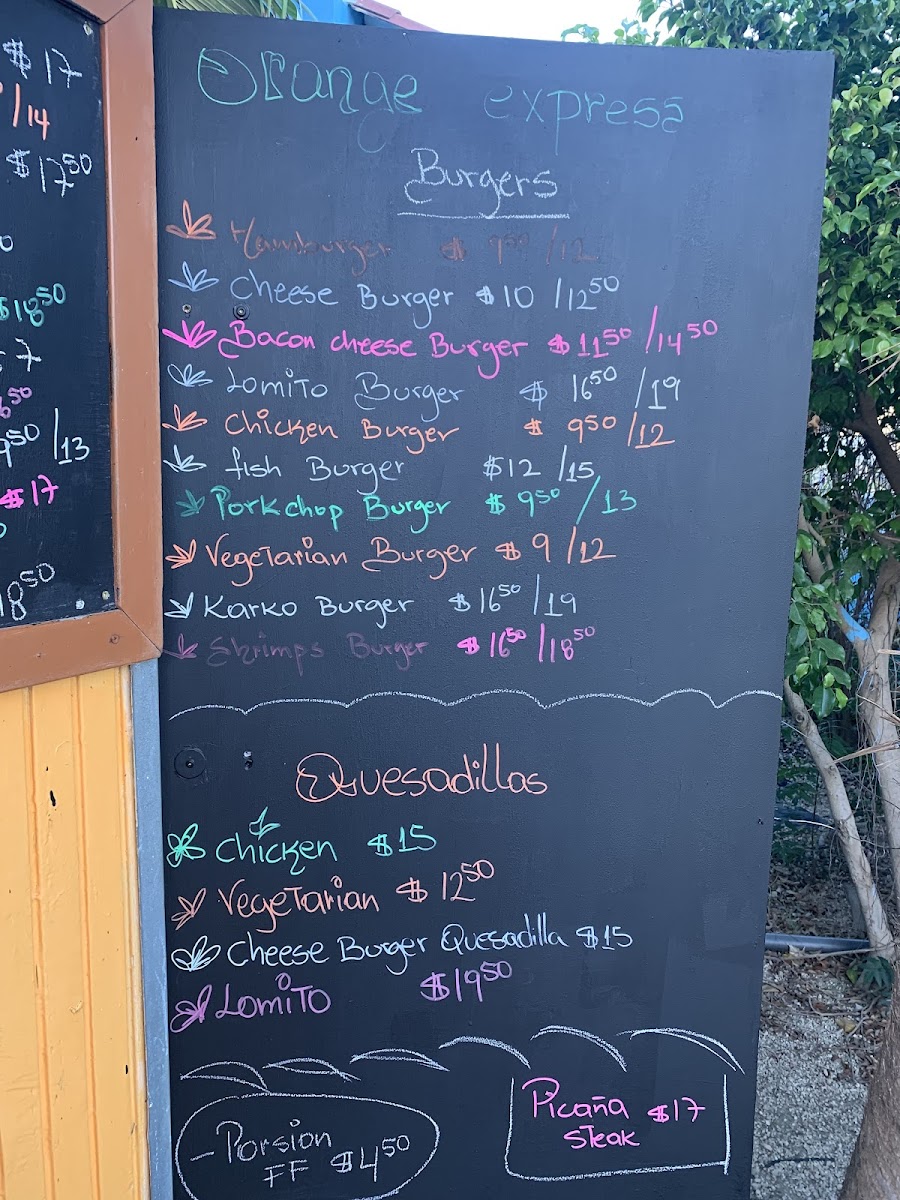 $17
/14
$17.50
$18.50
7
9.50 /13
$17
18.50
Orange express
Burgers
Hamburger $ 9.50 /12
Cheese Burger $10 /12.50
Bacon cheese Burger $11.50 /14.50
Lomito Burger $ 16.50 /19
Chicken Burger $ 9.50 /12
fish Burger $12 /15
Porkchop Burger $ 9.50 /13
Vegetarian Burger $ 9 /12
Karko Burger $16.50 /19
Shrimps Burger $16.50 /18.50
Quesadillas
Chicken $15
Vegetarian $ 12.50
Cheese Burger Quesadilla $15
Lomito $19.50
- Porsion
FF $4.50
Picaña $17
steak